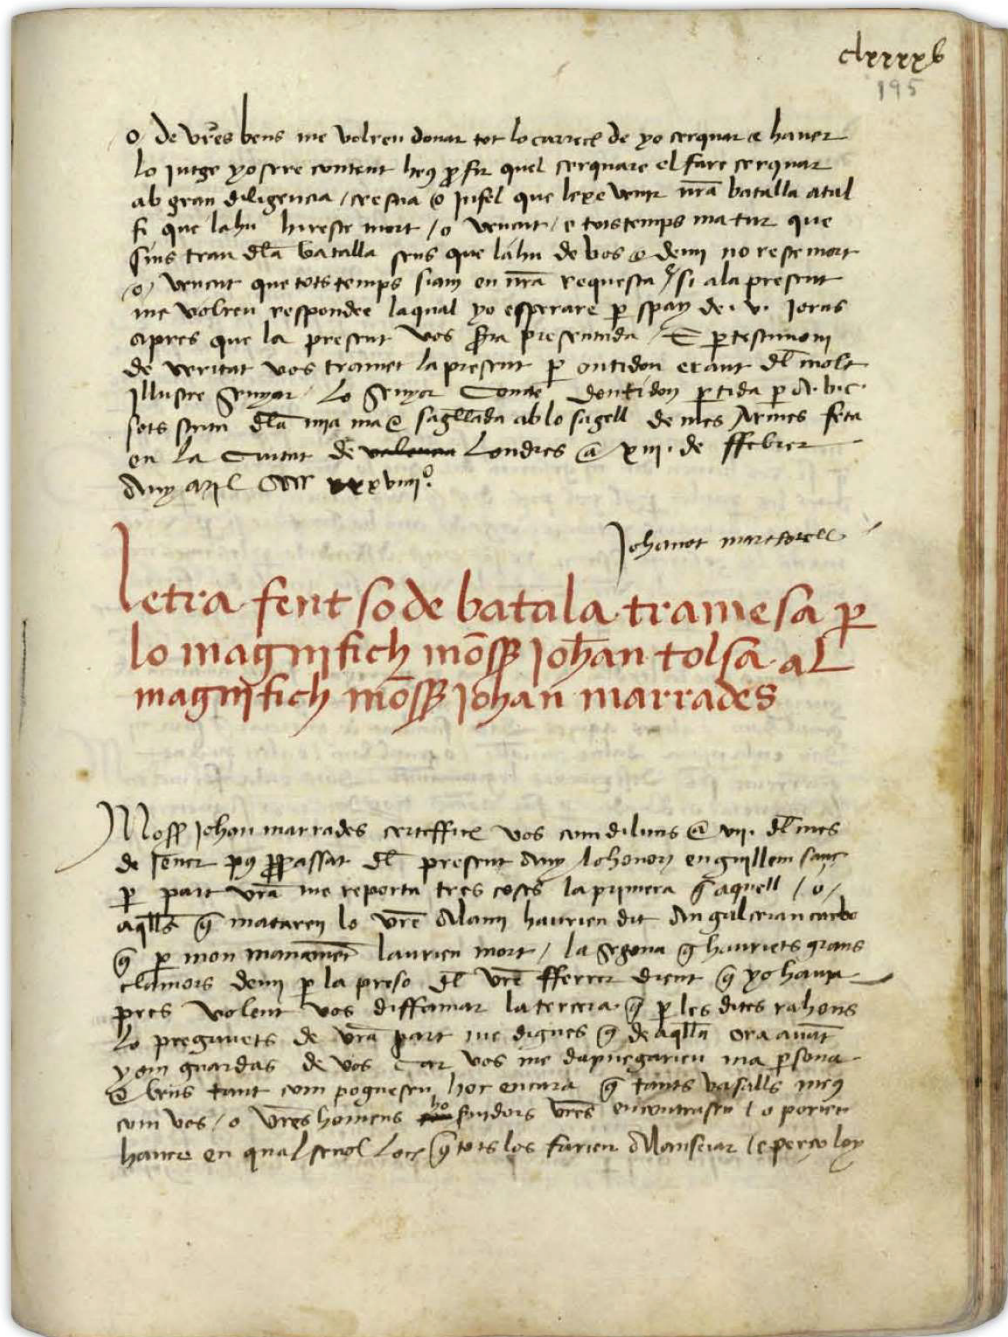 clxxxxv
195
o de vr̃es bens me volreu donar tot lo carrech de yo cerquar e haver
lo jutge yo sere content heus p̱ fir quel serquare el fare serquar
ab gran diligencia / crestia o infel que lexe venir nr̃a batalla a tal
fi que la hu hi reste mort / o vençut / e tots temps ma tur que
sius trau dl̃a batalla sens que la hu de vos o de mi no reste mort
/o/ vençut que tots temps siam en nr̃a requesta / si a la present
me volreu respondre la qual yo esperare p̱ spay de · v · jorns
apres que la present vos sera presentada / E p̱ testimoni
de veritat vos tramet la present p̱ ontidon eraut dl̃ molt
illustre senyor · Lo senyor Comte dontidon partida p̱ A · b · c ·
sots scrita dl̃a mja ma e sagellada ab lo sagell de mes Armes feta
en la Ciutat de valencia Londres a xiii · de ffebrer
Any Mil CCCC xxxviiii°.
Johanot martorell
Letra fent so de batala tramesa p̱
lo magnifich mõss Johan tolsa al
magnifich mõss Johan marrades
Moss Johan marrades certeffich vos com diluns a vii · dl̃ mes
de Jener p̱us p̱passat dl̃ present Any lo honor en guillem sanç
p̱ part vr̃a me reporta tres coses la primera q̃ aquell / o /
aqlls q̃ mataren lo vr̃e Alami havrien dit An galceran carbo
q̃ p̱ mon manament lavrien mort / la segona q̃ havriets grans
clamors de mi p̱ la preso dl̃ vr̃e fferrer dient q̃ yo havia
pres volent vos diffamar la tercera q̃ p̱ les dites rahons
lo pregavets de vr̃a part me digues q̃ de aqlla ora avant
yom guardas de vos Car vos me dapnegarieu ma persona
e bens tant com poguesseu hoc encara q̃ tants vasalls meus
com vos / o vr̃es homens ho servidors vr̃es encontrasseu / o porieu
haver en qualsevol loch q̃ tots los farieu Manseiar / e perço loy